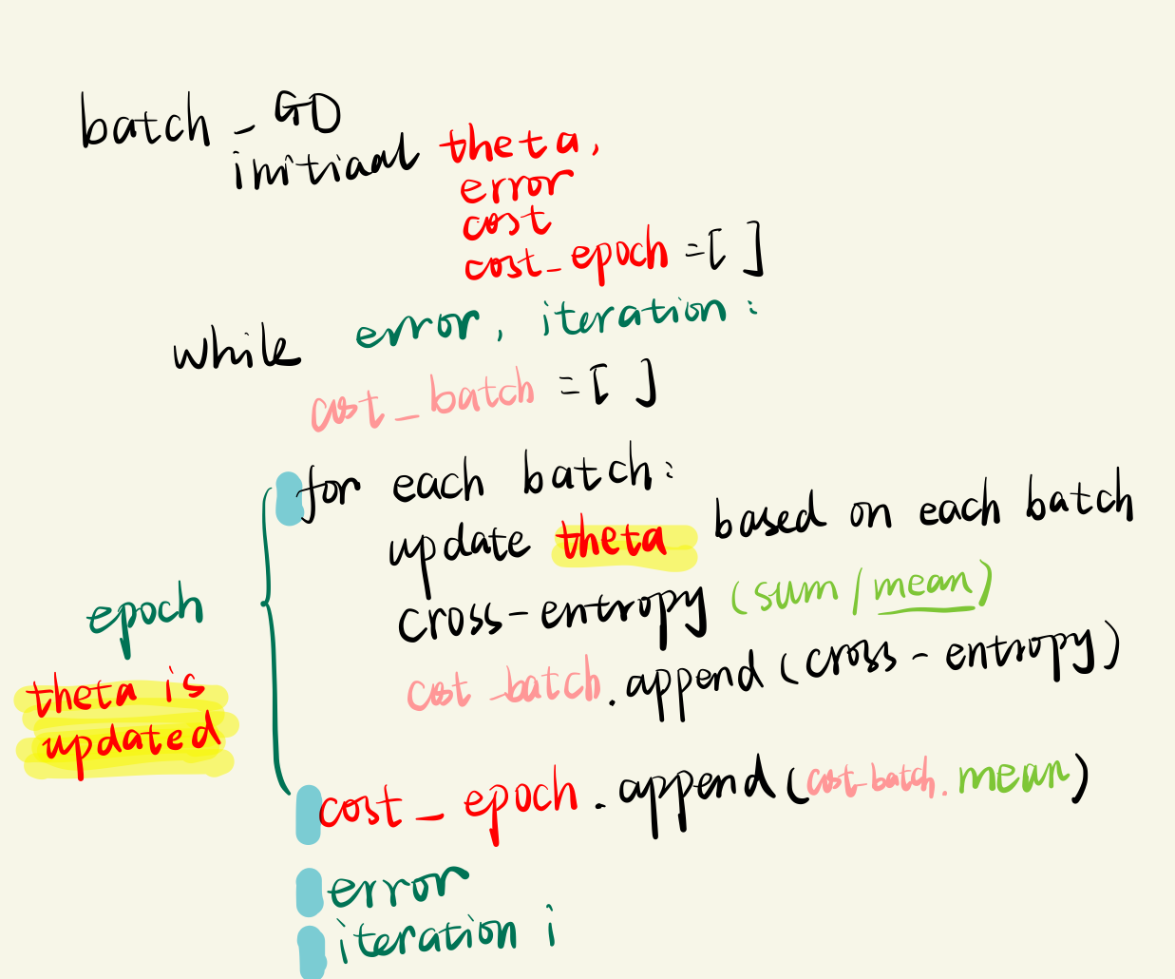 batch_GD
initiaal theta,
error
cost
cost_epoch = [ ]
while error, iteration :
cost_batch = [ ]
for each batch:
update theta based on each batch
cross-entropy (sum / mean)
cost_batch.append(cross-entropy)
epoch
theta is
updated
cost_epoch.append(cost_batch.mean)
error
iteration i